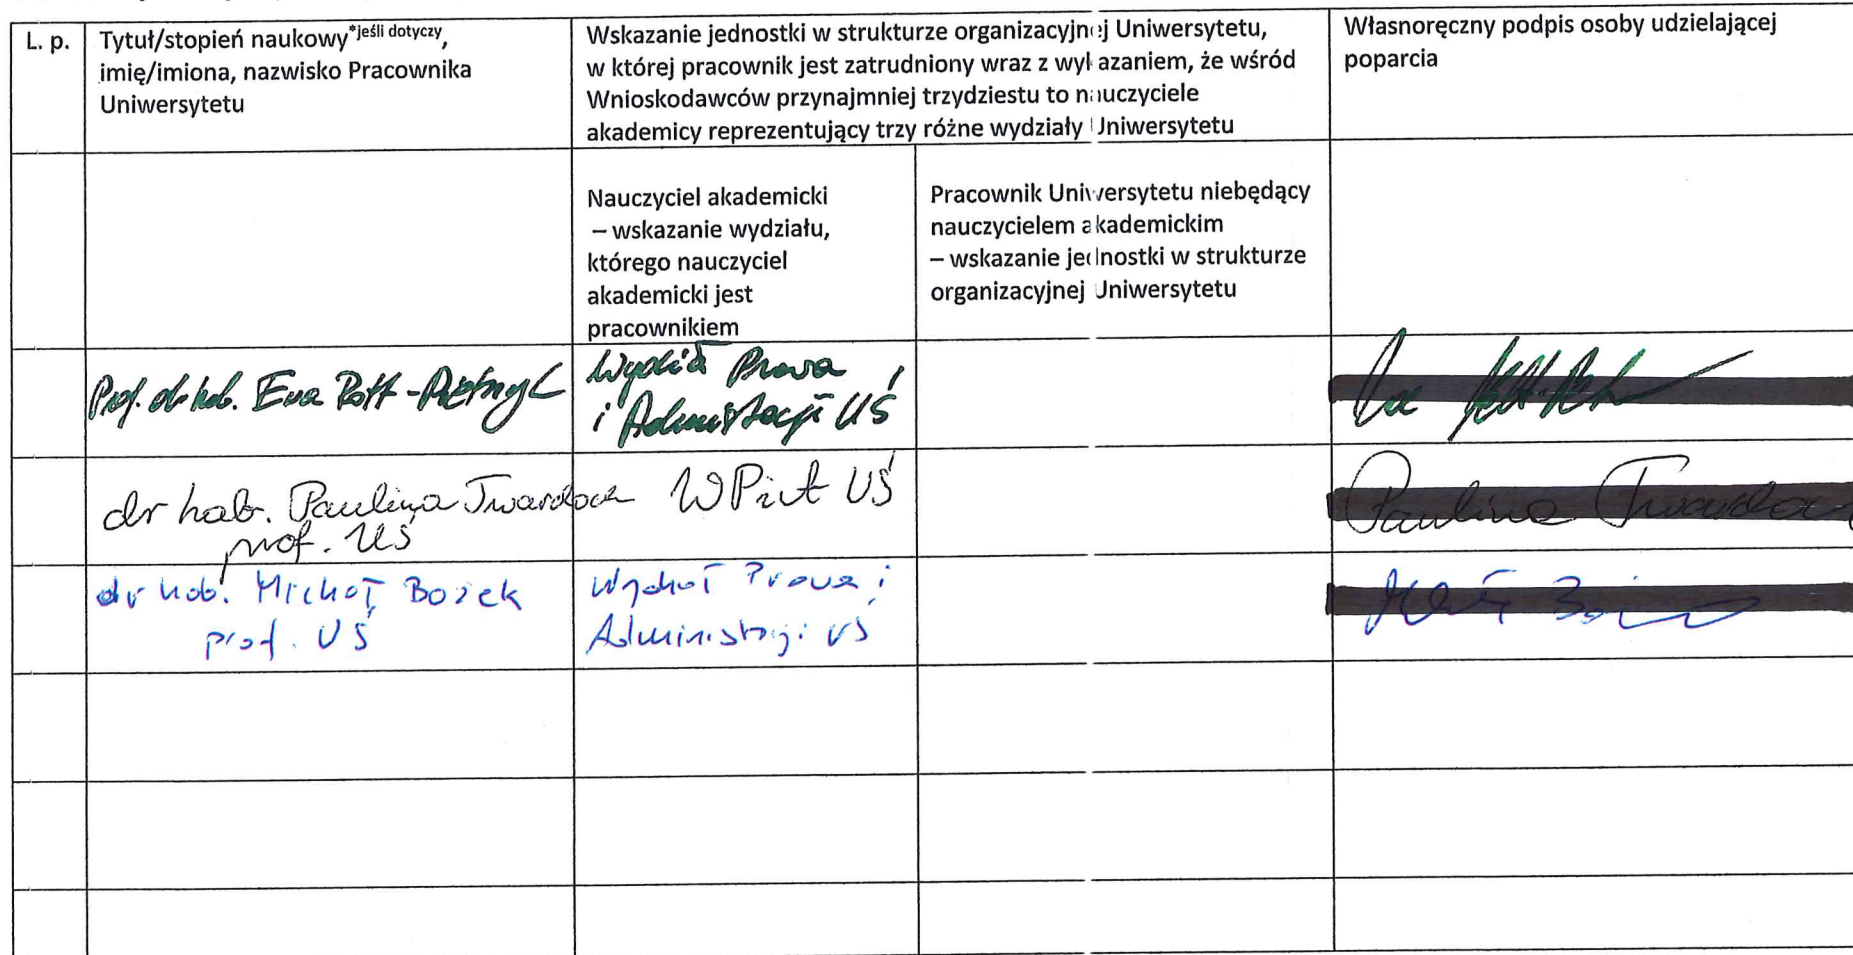 L. p.
Tytuł/stopień naukowy*jeśli dotyczy,
imię/imiona, nazwisko Pracownika
Uniwersytetu
Wskazanie jednostki w strukturze organizacyjnej Uniwersytetu,
w której pracownik jest zatrudniony wraz z wykazaniem, że wśród
Wnioskodawców przynajmniej trzydziestu to nauczyciele
akademicy reprezentujący trzy różne wydziały Uniwersytetu
Własnoręczny podpis osoby udzielającej
poparcia
Nauczyciel akademicki
– wskazanie wydziału,
którego nauczyciel
akademicki jest
pracownikiem
Pracownik Uniwersytetu niebędący
nauczycielem akademickim
– wskazanie jednostki w strukturze
organizacyjnej Uniwersytetu
Prof. dr hab. Ewa Rott-Pietrzyk
Wydział Prawa
i Administracji UŚ
dr hab. Paulina Twardoch
prof. UŚ
WPiA UŚ
Paulina Twardoch
dr hab. Michał Bożek
prof. UŚ
Wydział Prawa i
Administracji UŚ